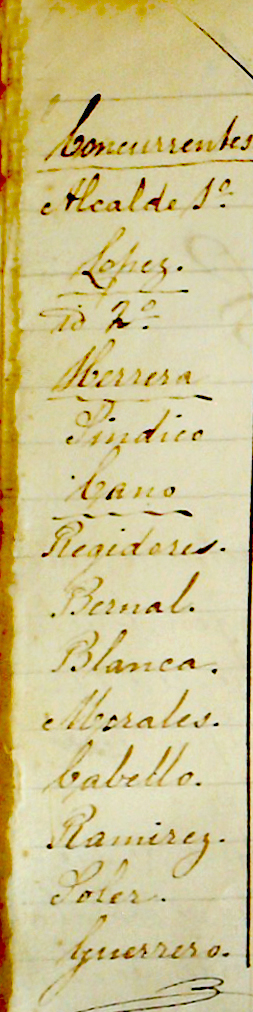 Concurrentes
Alcalde 1º.
Lopez.
id 2º.
Herrera
Sindico
Cano
Regidores.
Bernal.
Blanca.
Morales.
Cabello.
Ramirez.
Soler.
Guerrero.